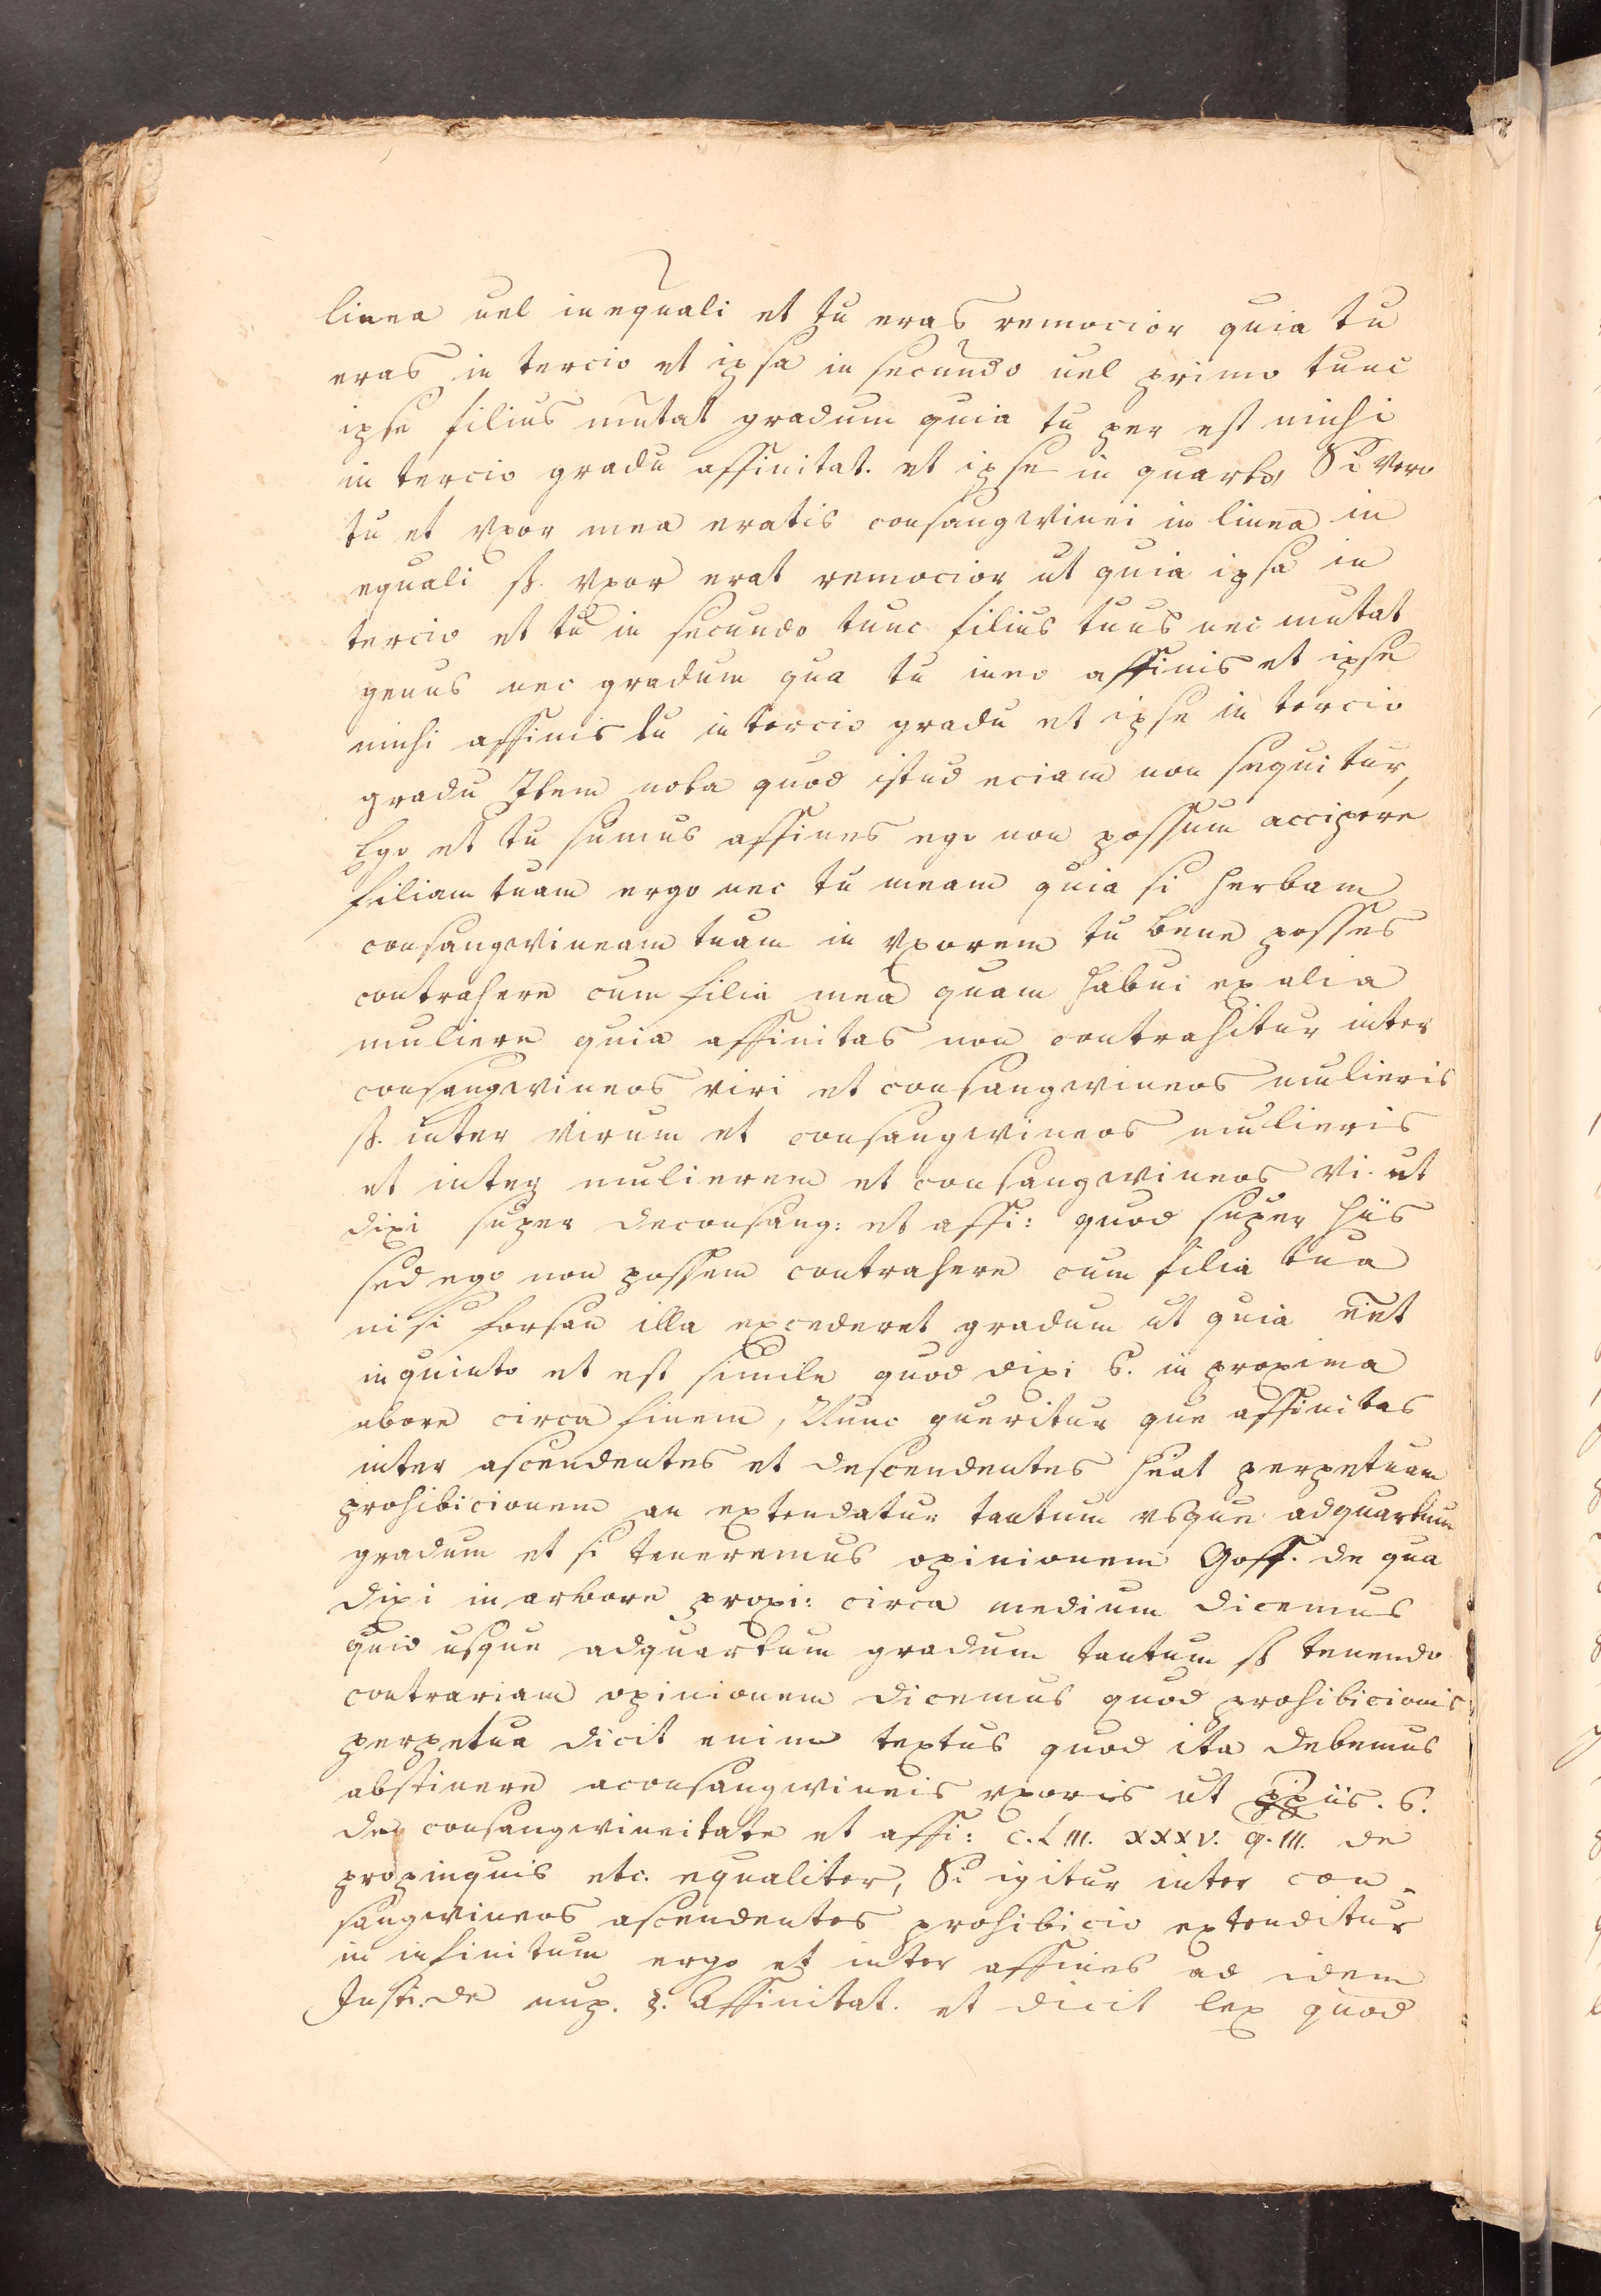 linea uel inequali et tu eras remocior quia tu
eras in tercio et ipsa in secundo uel primo tunc
ipse filius mutat gradum quia tu per est michi
in tercio gradu affinitat. et ipse in quarto, Si vero
tu et vxor mea eratis consangwinei in linea in
equali ß. vxor erat remocior ut quia ipsa in
tercio et tu in secundo tunc filius tuus nec mutat
genus nec gradum qua tu meo affinis et ipse
michi affinis tu in tercio gradu et ipse in tercio
gradu Item nota quod istud eciam non sequitur,
Ego et tu sumus affines ego non possum accipere
filiam tuam ergo nec tu meam quia si herbam
consangwineam tuam in vxorem tu bene posses
contrahere cum filia mea quam habui ex alia
muliere quia affinitas non contrahitur inter
consangwineos viri et consangwineos mulieris
ß. inter virum et consangwineos mulieris
et inter mulierem et consangwineos vi. ut
dixi super deconsang: et affi: quod super hiis
sed ego non possem contrahere cum filia tua
nisi forsan illa excederet gradum ut quia eēt
in quinto et est simile quod dixi S. in proxima
abore circa finem, Nunc queritur que affinitas
inter ascendentes et descendentes heat perpetuam
prohibicionem an extendatur tantum vsque adquartum
gradum et si teneremus opinionem Goff. de qua
dixi in arbore proxi: circa medium dicemus
quid usque adquartum gradum tantum ß tenendo
contrariam opinionem dicemus quod prohibicionis
perpetua dicit enim textus quod ita debemus
abstinere aconsangwineis vxoris ut ppiis. S.
de consangwineitate et affi: c. L III. XXXV. q. III. de
propinquis etc. equaliter, Si igitur inter con-
sangwineos ascendentes prohibicio extenditur
in infinitum ergo et inter affines ad idem
Insti. de nup. §. Affinitat. et dicit lex quod